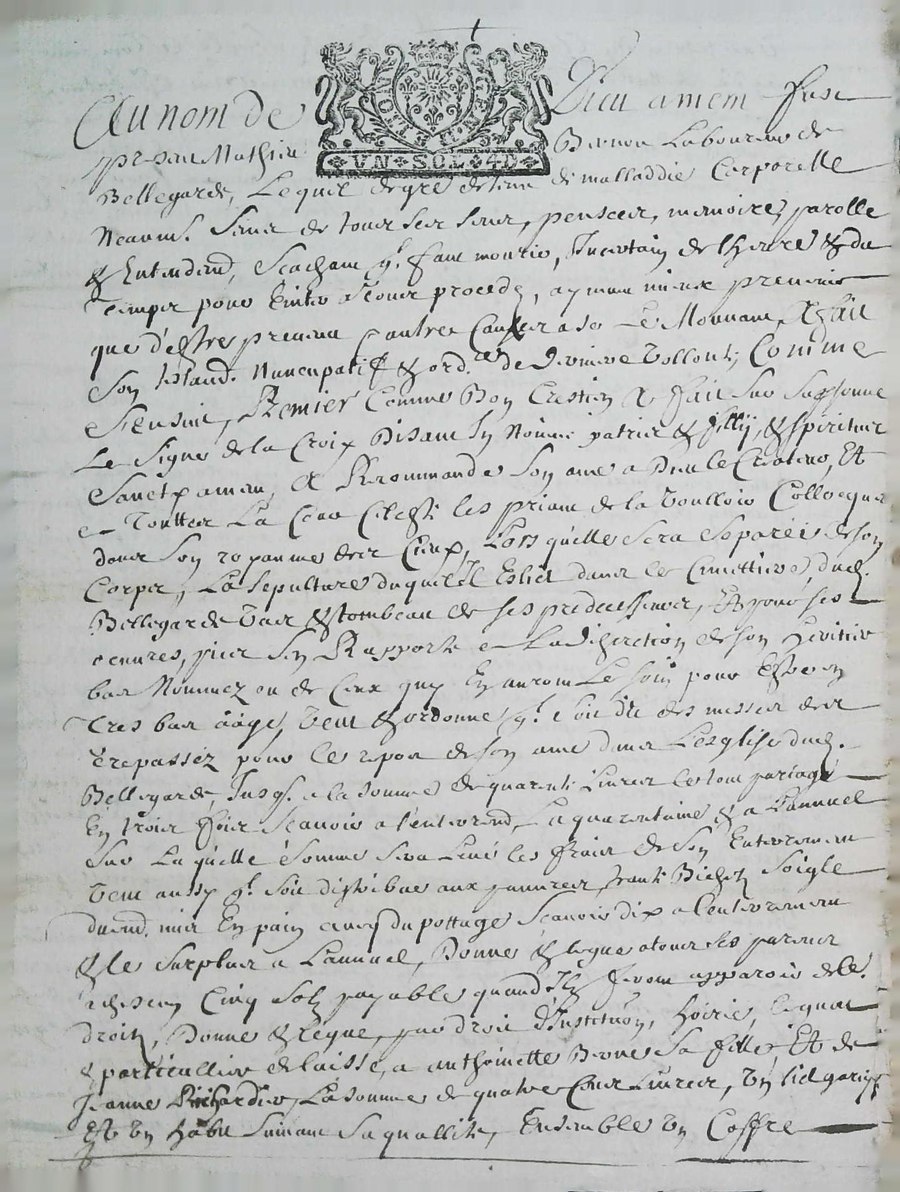 Au nom de Dieu amem fust
present Mathieu Laboureur de
UN · SOL · 4D
Bellegarde, Lequel de gre detenu de malladdie Corporelle
Neaum.s Saint de tous ses sens, pensées, memoire, parolle
& Entendend, Scachant q.l faut mourir, Incertain de lheure & du
Temps pour Eviter a tout procede, aymant mieux prevenir
que d'estre prevenu Le Mourant, A fait
Son testand. Nuncupatif & ord.re de derniere Vollonte, Comme
S'ensuit, Premier Comme Bon Crestien A fait sur sa personne
Le Signe de la Croix Disant In Nomine patris & fillij, & spiritus
Sancty amen, A Recommande Son ame a Dieu le Createur, Et
a Toutte La Cour Celeste les priant de la Voulloir Collocquer
dans Son royaume des Cieux, Lors qu'elle sera Separée de son
Corps, La sepulture duquel Il Eslict dans le Cimettiere dud.
Bellegarde & tombeau de ses predecesseurs, Et pour ses
oeuvres pies S'en Rapporte a La discretion de son heritier
bas Nommez ou de Ceux quy En auront Le soin pour Estre en
tres bas aâge, Veut & ordonne q.l soit dit des messes des
trepassez pour le repos de son ame dans L'esglise dud.
Bellegarde, Jusq. a la somme de quarente Livres le tout partagé
En trois fois Scavoir a l'enterrend, La quarentaine & a L'annuel
Sur Laquelle somme sera Levé les frais de Son Enterrement
Veut aussy q.l soit distribue aux pauvres trente Bichets Soigle
mis En pain avec du pottage Scavoir dix a l'enterrement
& le Surplus a L'annuel, Donne & legue a tous ses parens
Cinq Solz payable quand Ils feront apparoir de le.
droits, Donne & legue, par droit D'Institution, hoirie, legat
& particullier delaisse, a anthoinette sa fille, Et de
Jeanne La somme de quatre Cent Livres, Un lict garny
Et Un habit Suivant Sa quallité, Ensemble Un Coffre